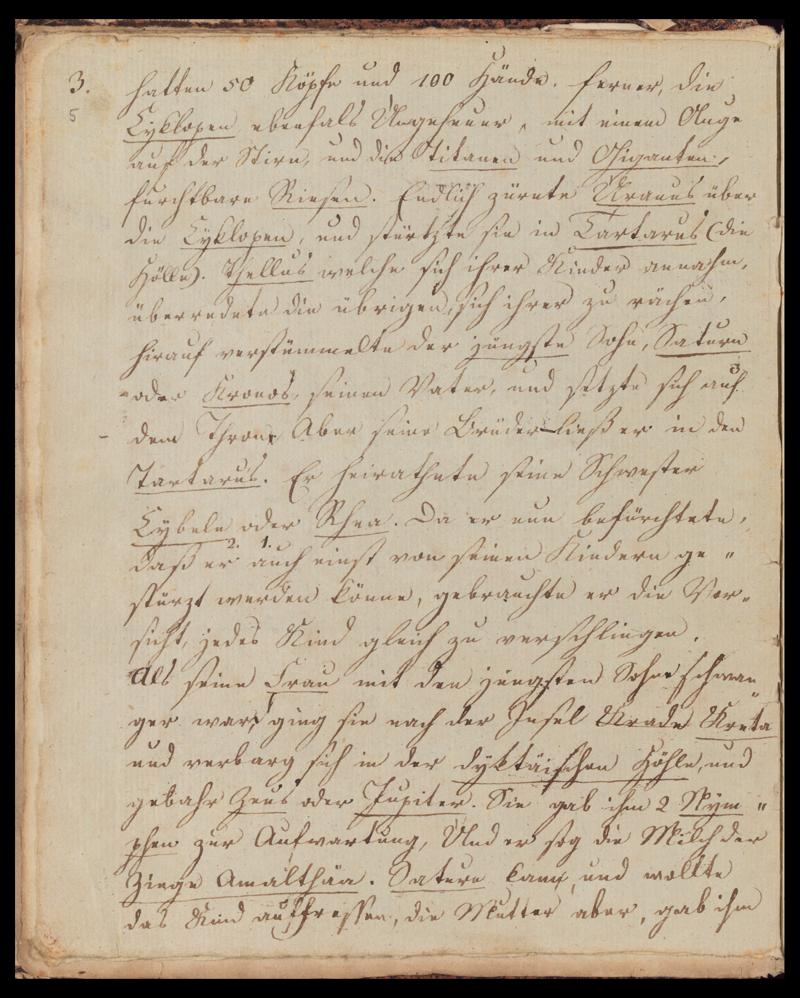 3. hatten 50 Köpfe und 100 Hände. ferner, die
5
Cyklopen ebenfals Ungeheuer, mit einem Auge
auf der Stirn, und die Titanen und Giganten,
furchtbare Riesen. Endlich zürnte Uranus über
die Cyklopen, und stürtzte sie in Tartarus (die
Hölle). Thellus welche sich ihrer Kinder annahm,
überredete die übrigen, sich ihrer zu rächen,
hirauf verstümmelte der jüngste Sohn, Saturn
oder Kronos, seinen Vater, und setzte sich auf
dem Thron. Aber seine Brüder ließ er in den
Tartarus. Er heirathete seine Schwester
Cybele oder Rhea. Da er nun befürchtete,
2. 1.
daß er auch einst von seinen Kindern ge„
stürzt werden könne, gebrauchte er die Vor„
sicht, jedes Kind gleich zu verschlingen.
Als seine Frau mit den jüngsten Sohne schwan„
ger war, ging sie nach der Insel Krade Kreta
und verbarg sich in der dyktäischen Höhle, und
gebahr Zeus oder Jupiter. Sie gab ihm 2 Nym„
phen zur Aufwartung, Und er sog die Milch der
Ziege Amalthäa. Saturn kam, und wollte
das Kind auffressen, die Mutter aber, gab ihm